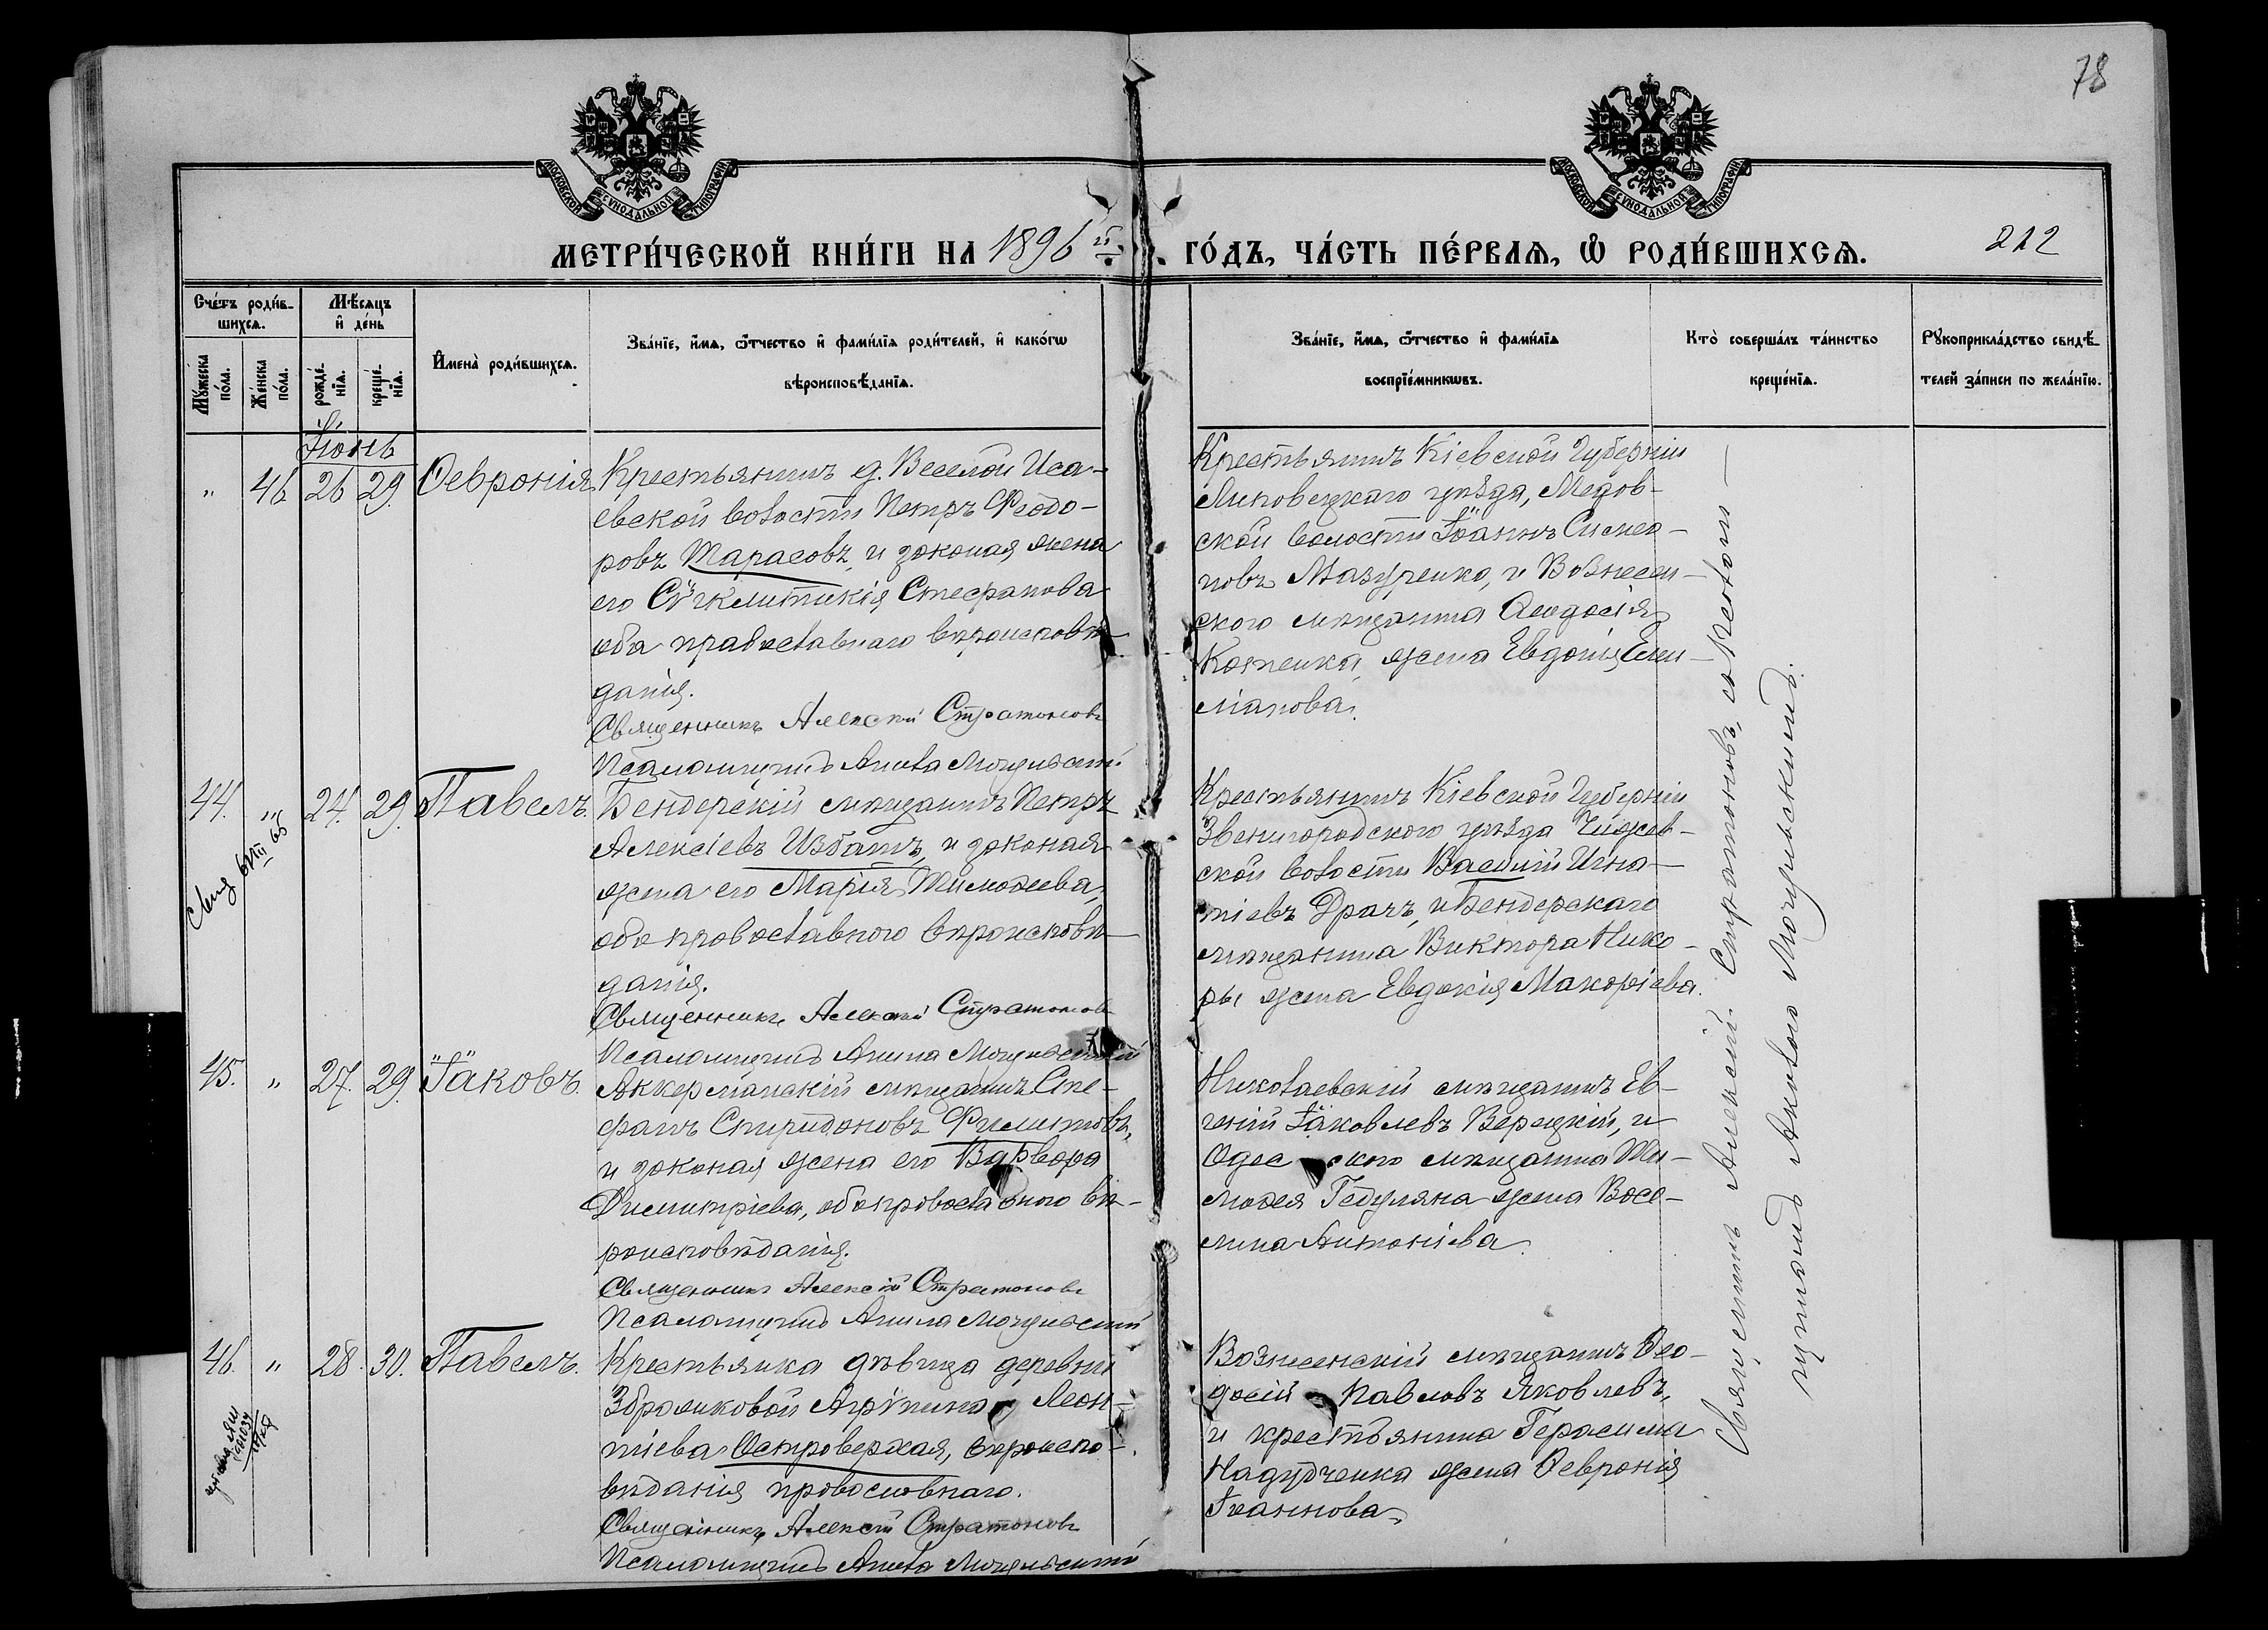 78
МОСКОВСКОЙ СУНОДАЛЬНОЙ ТИПОГРАФІИ
МОСКОВСКОЙ СУНОДАЛЬНОЙ ТИПОГРАФІИ
МЕТРИ́ЧЕСКОЙ КНИ́ГИ НА 1896 й
ГО́ДЪ, ЧА́СТЬ ПЕ́РВАѦ, Ѿ РОДИ́ВШИХСѦ.
212
Сче́тъ роди́в-
шихсѧ.
Мѣ́сѧцъ
и҆ де́нь
Мꙋ́жеска
по́ла.
Же́нска
по́ла.
рожде́-
нїѧ.
креще́-
нїѧ.
И҆мена̀ роди́вшихсѧ.
Зва́нїе, и҆́мѧ, ѻ҆́тчество и҆ фами́лїѧ роди́телей, и҆ како́гѡ
вѣроисповѣ́данїѧ.
Зва́нїе, и҆́мѧ, ѻ҆́тчество и҆ фами́лїѧ
воспрїе́мникѡвъ.
Кто̀ соверша́лъ та́инство
креще́нїѧ.
Рꙋкоприкла́дство свидѣ́-
телей за́писи по жела́нїю.
Іюнь
" 46 26 29. Ѳевронія
Крестьянинъ д. Веселой Иса-
евской волости Петръ Ѳеодо-
ровъ Тарасовъ, и законая жена
его Сѵгклитикія Стефанова
оба православнаго вѣроисповѣ-
данія.
Священникъ Алексій Стратоновъ
Псаломщикъ Акила Могульскій
Крестьянинъ Кіевской Губерніи
Липовецкаго уѣзда, Медов-
ской волости Іоаннъ Симео-
новъ Мазуренко, и Вознесен-
ского мѣщанина Ѳеодосія
Котенка, жена Евдокія Еми-
ліанова.
44. " 24. 29. Павелъ.
Бендерскій мѣщанинъ Петръ
Алексіевъ Избашъ, и законая
жена его Марія Тимоѳеева,
оба православного вѣроисповѣ-
данія.
Священникъ Алексій Стратоновъ
Псаломщикъ Акила Могульскій
Крестьянинъ Кіевской Губерніи
Звенигородского уѣзда Чижов-
ской волости Василій Игна-
тіевъ Драчъ, и Бендерскаго
мѣщанина Виктора Нико-
ры жена Евдокія Макаріева.
45. " 27. 29. Іаковъ.
Аккерманскій мѣщанинъ Сте-
фанъ Спиридоновъ Филиповъ,
и законая жена его Варвара
Димитріева, оба православного вѣ-
роисповѣданія.
Священникъ Алексій Стратоновъ
Псаломщикъ Акила Могульскій
Николаевскій мѣщанинъ Ев-
геній Іаковлевъ Верецкій, и
Одес ского мѣщанина Ти-
моѳея Гедуляна жена Васи-
лиса Антоніева.
46. " 28. 30. Павелъ.
Крестьянка дѣвица деревни
Збрашковой Агрипина Леон-
тіева Островерхая, вѣроиспо-
вѣданія православнаго.
Священникъ Алексій Стратоновъ
Псаломщикъ Акила Могульскій
Вознесенскій мѣщанинъ Ѳео-
досій Павловъ Яковлевъ,
и крестьянина Герасима
Надудченка жена Ѳевронія
Іоаннова.
Священникъ Алексій Стратоновъ, съ псаломщикомъ Акилою Могульскимъ.